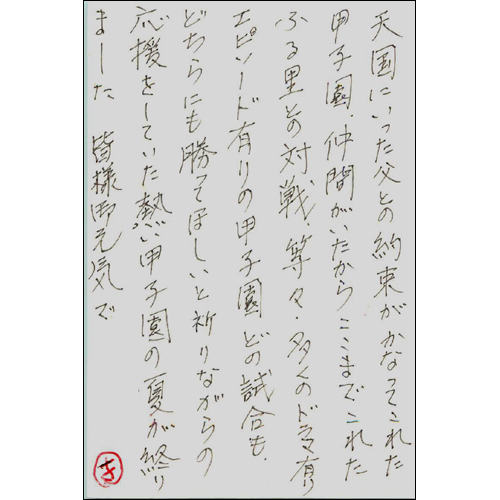 天国にいった父との約束がかなってこれた
甲子園、仲間がいたからここまでこれた
ふる里との対戦、等々、多くのドラマ有り
エピソード有りの甲子園どの試合も、
どちらにも勝ってほしいと祈りながらの
応援をしていた熱い甲子園の夏が終り
ました　皆様御元気で